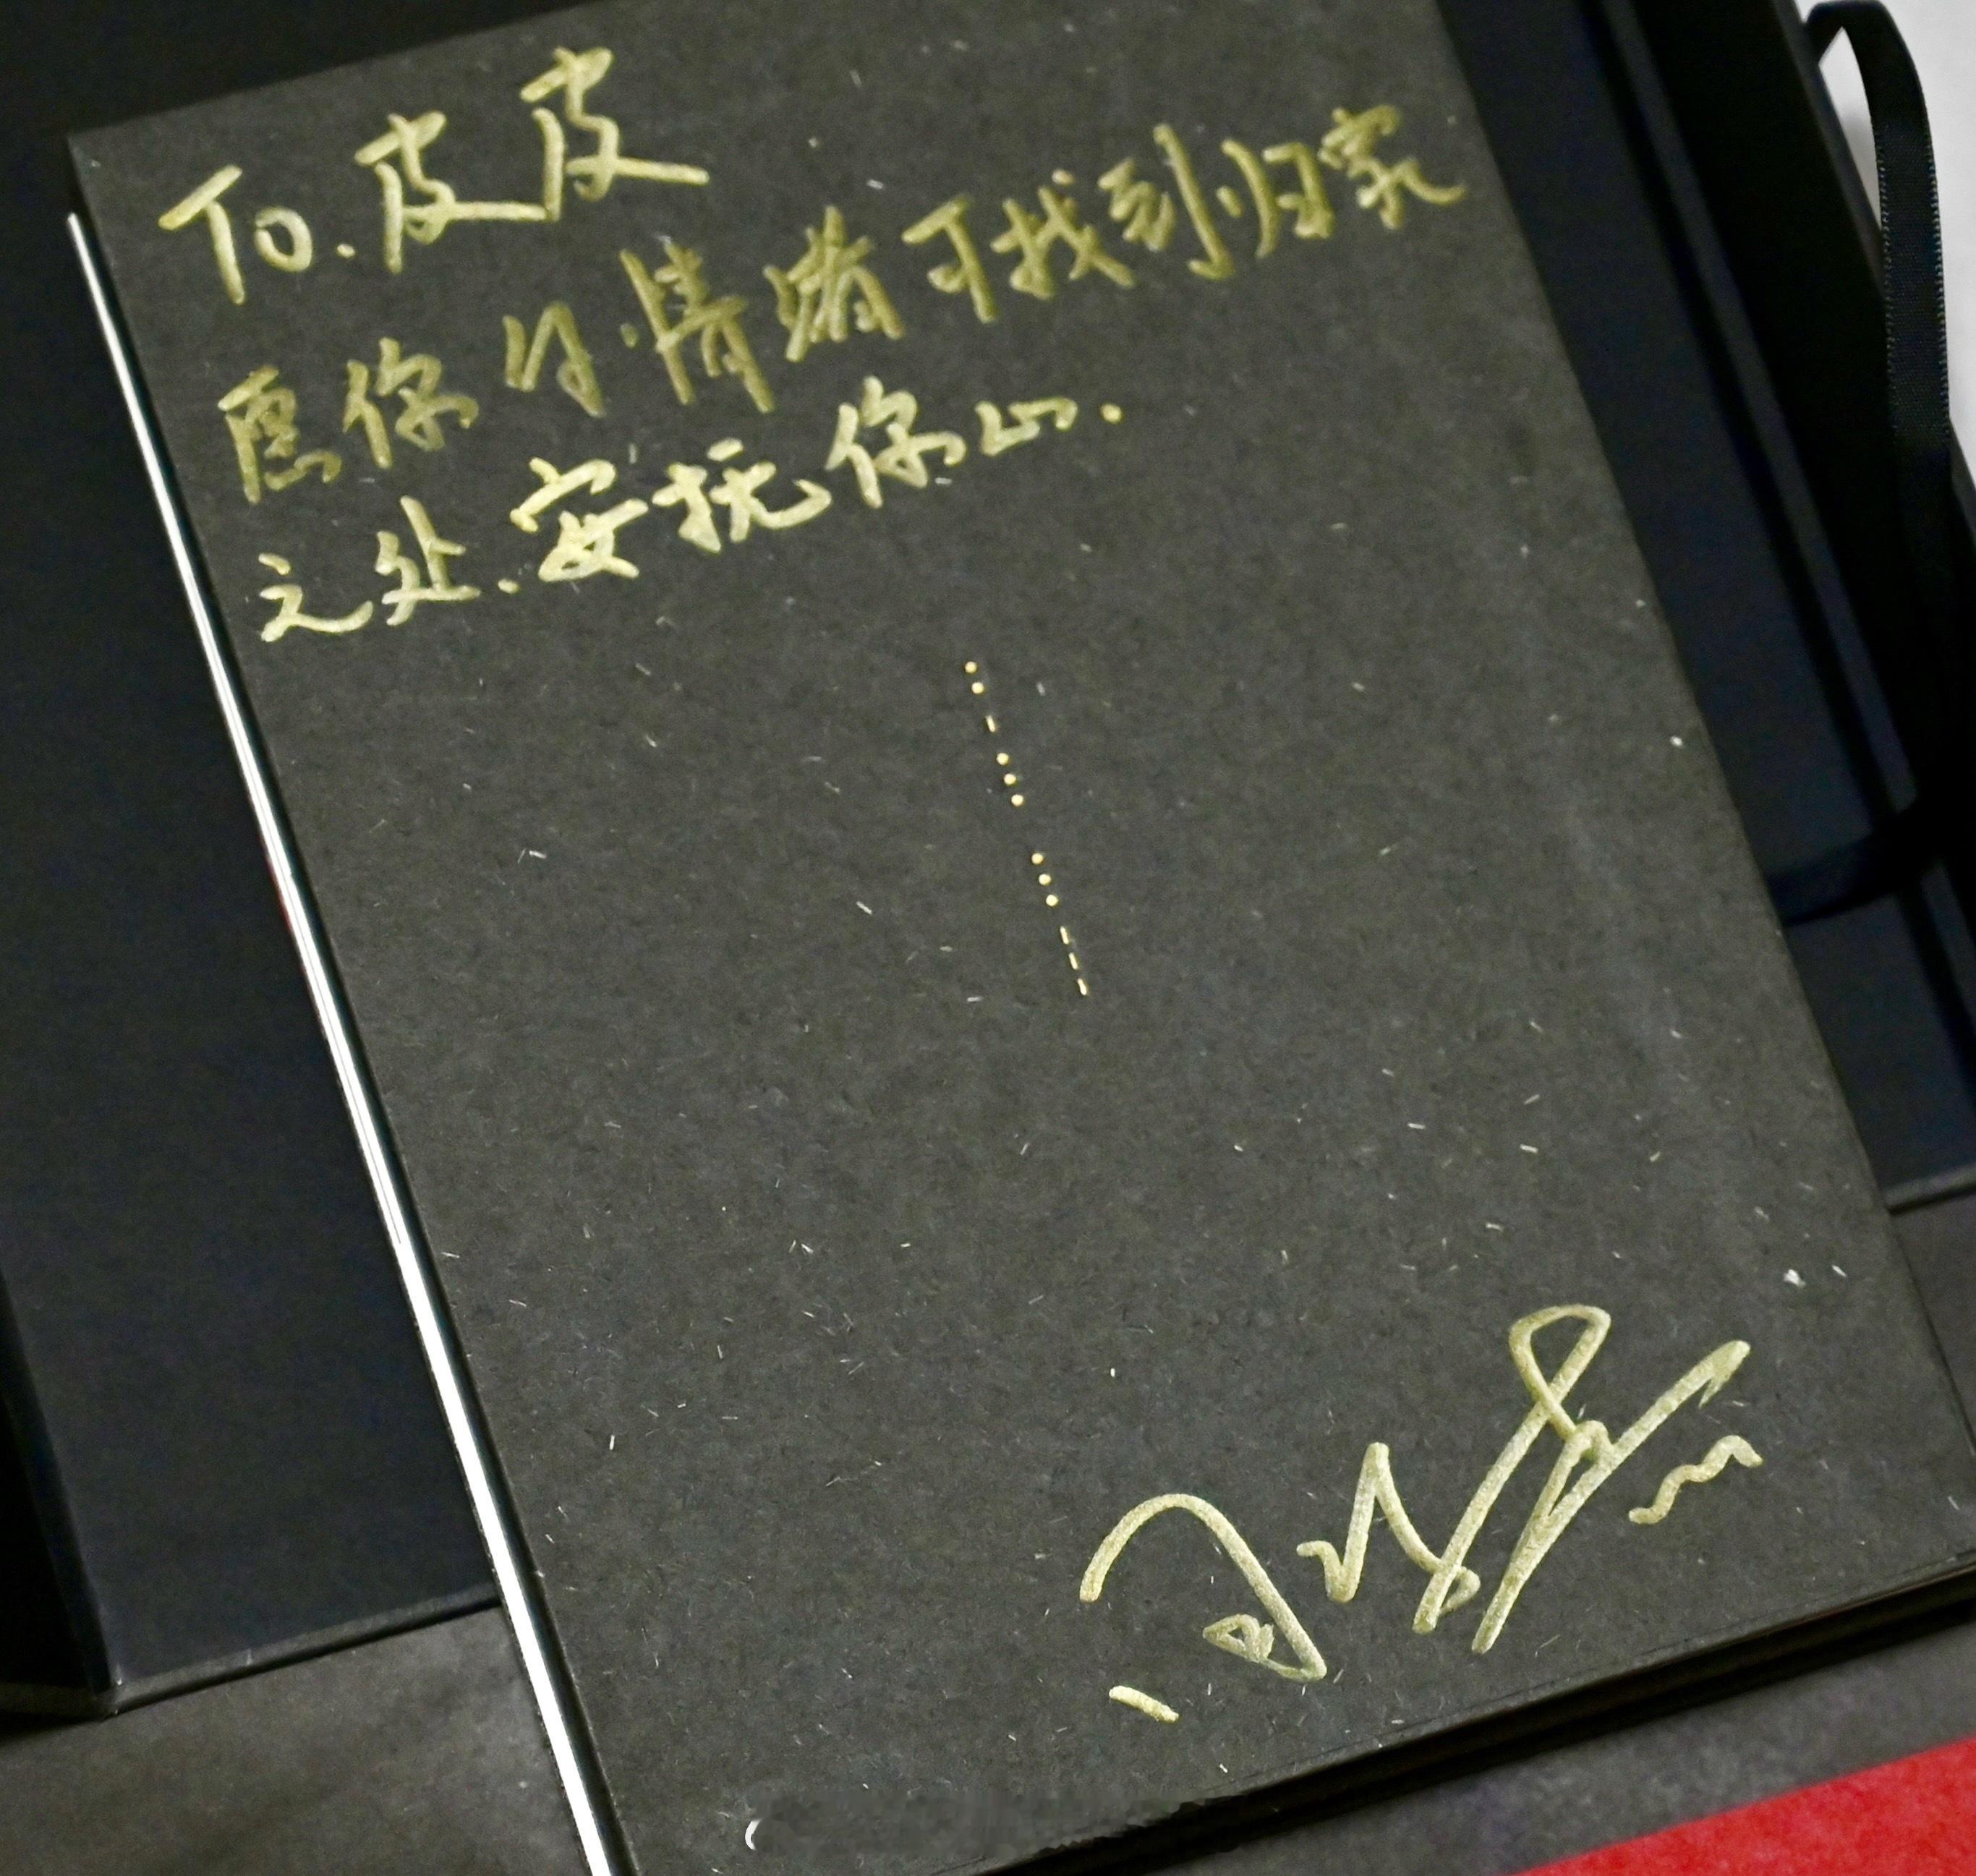 To.皮皮
愿你的情绪可找到归家
之处.安抚你心.